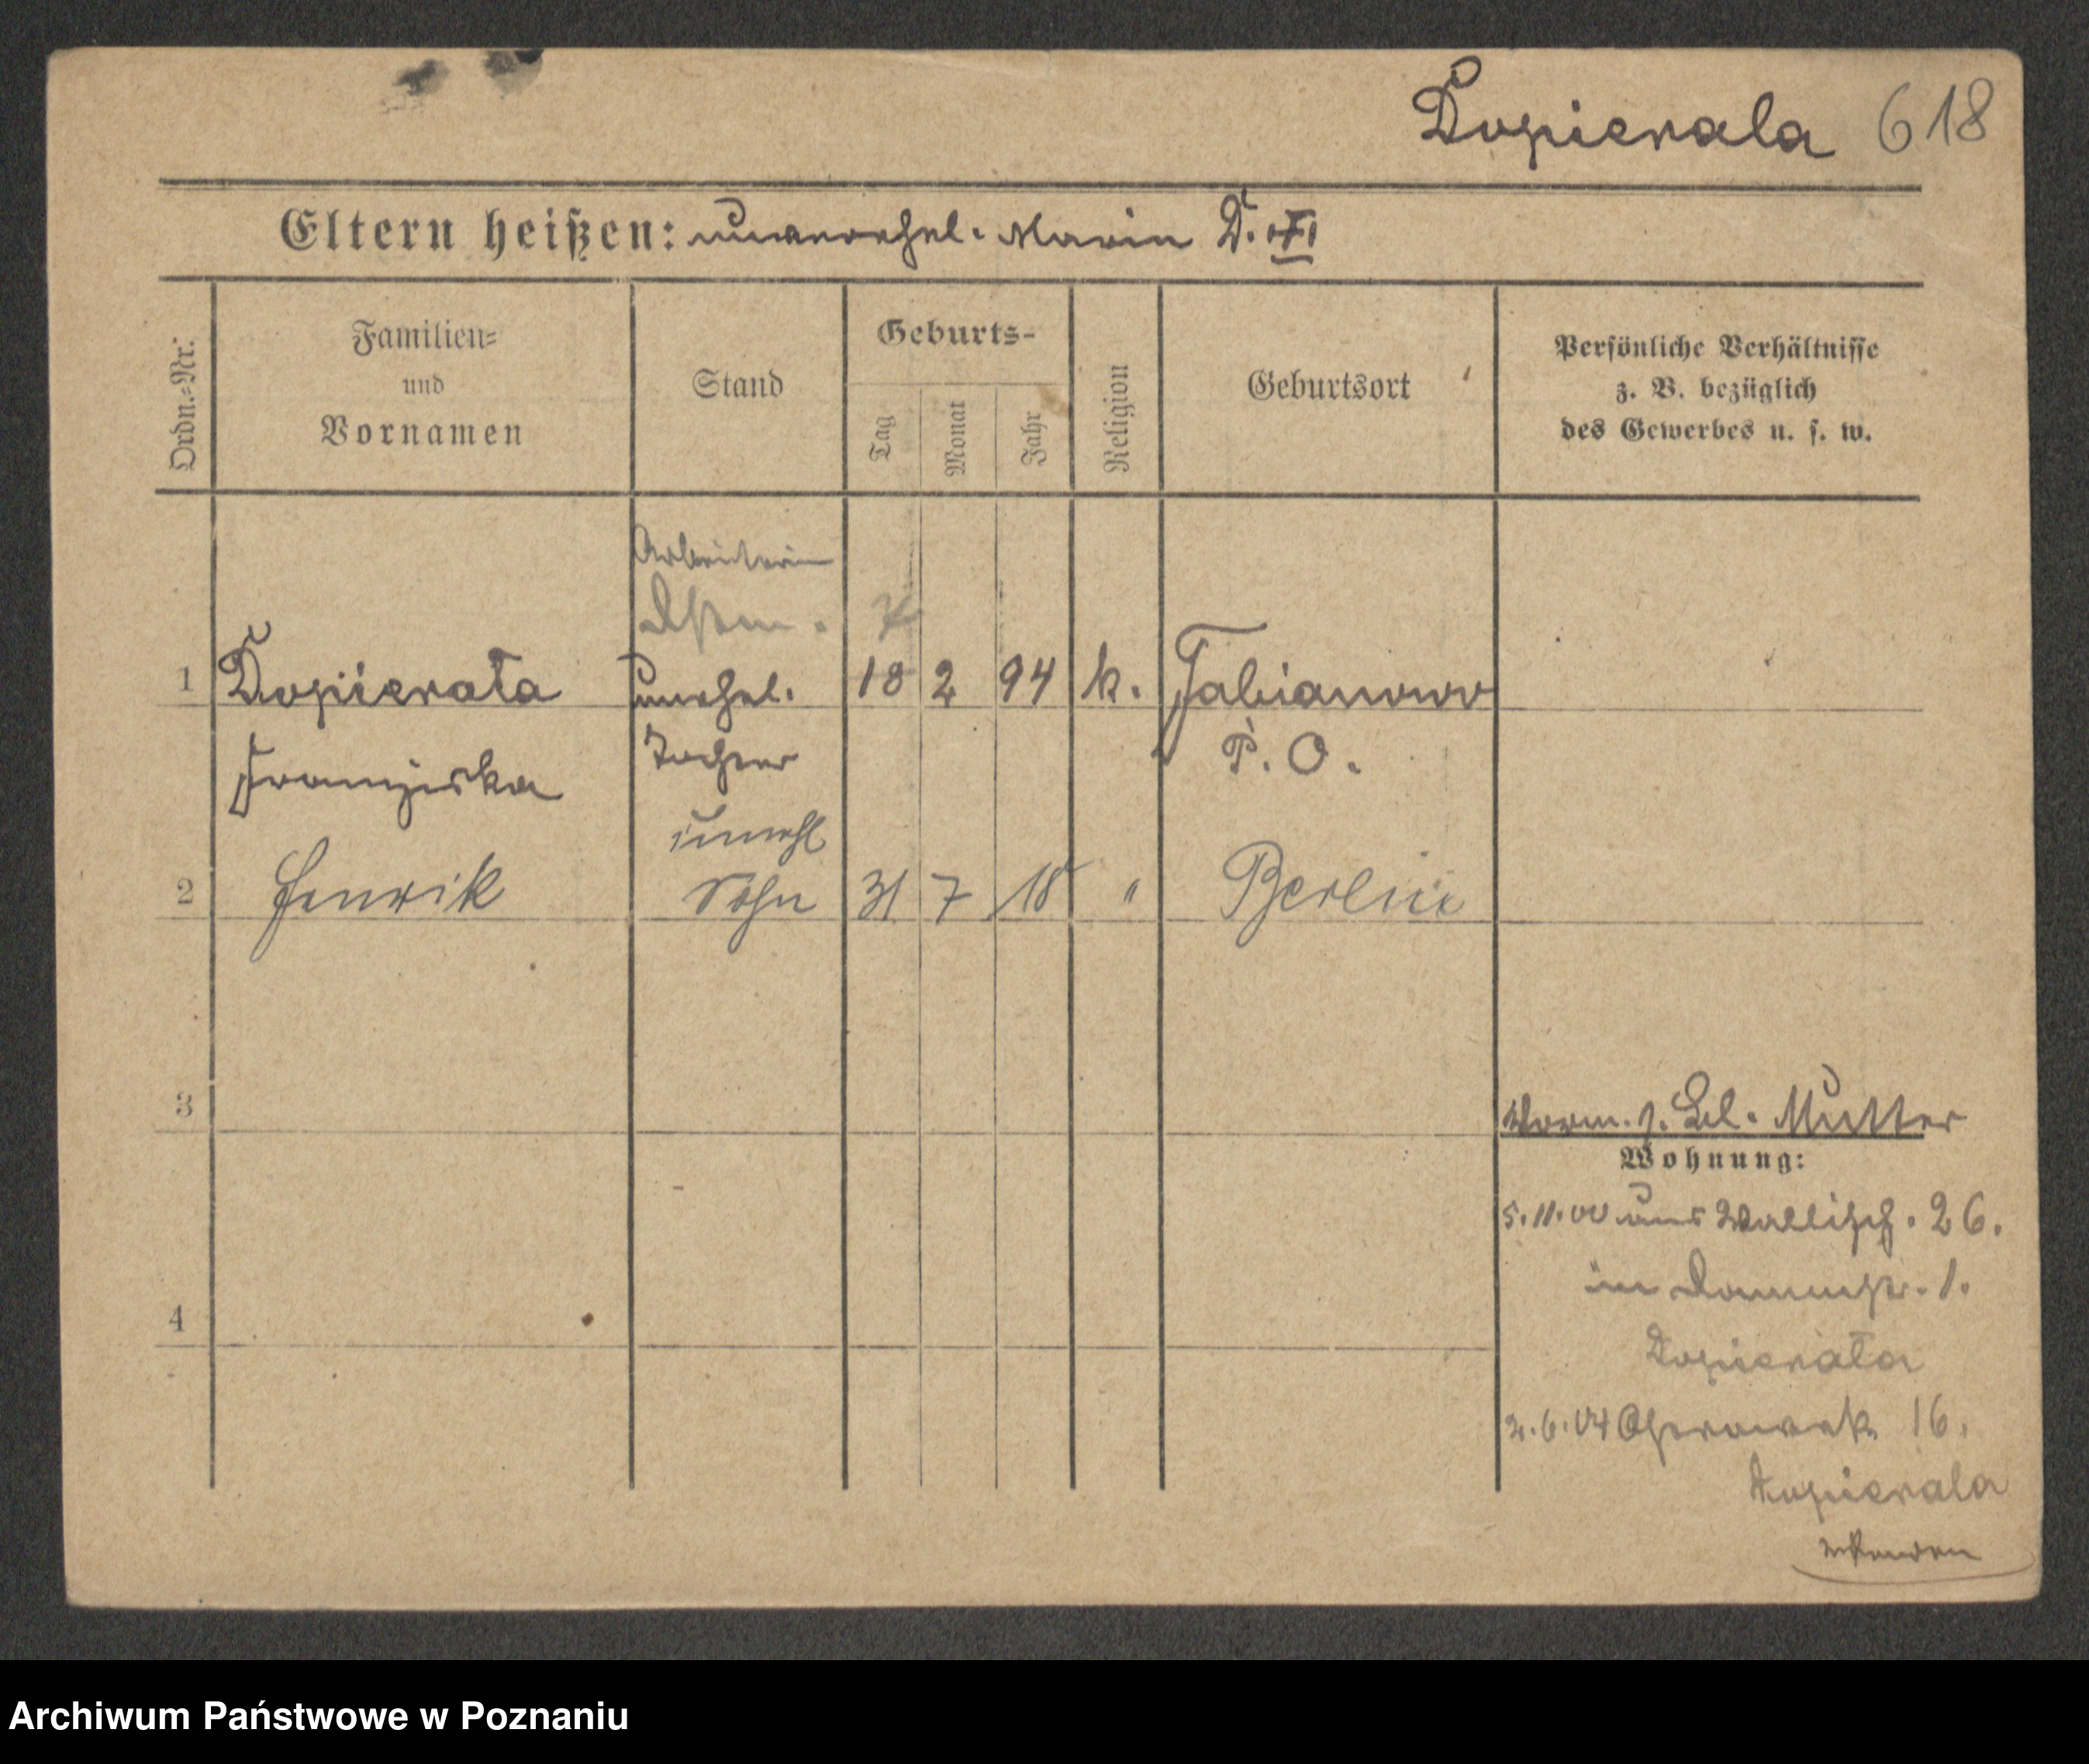 Dopierala 618
Eltern heißen: unverehel. Maria D.
Ordn.=Nr.
Familien=
und
Vornamen
Stand
Geburts-
Tag
Monat
Jahr
Religion
Geburtsort
Persönliche Verhältnisse
z. B. bezüglich
des Gewerbes u. s. w.
Arbeiterin
1 Dopierała unehel. 18 2 94 k. Fabianowo
Franziska Tochter P. O.
unehl
2 Henrik Sohn 31 7 18 " Berlin
3
Vorm. s. Bl. Mutter
Wohnung:
5.11.00 aus Wallisch. 26.
in Dammstr. 1.
4
Dopierała
2.6.04 Ostrowek 16.
Dopierala
Archiwum Państwowe w Poznaniu